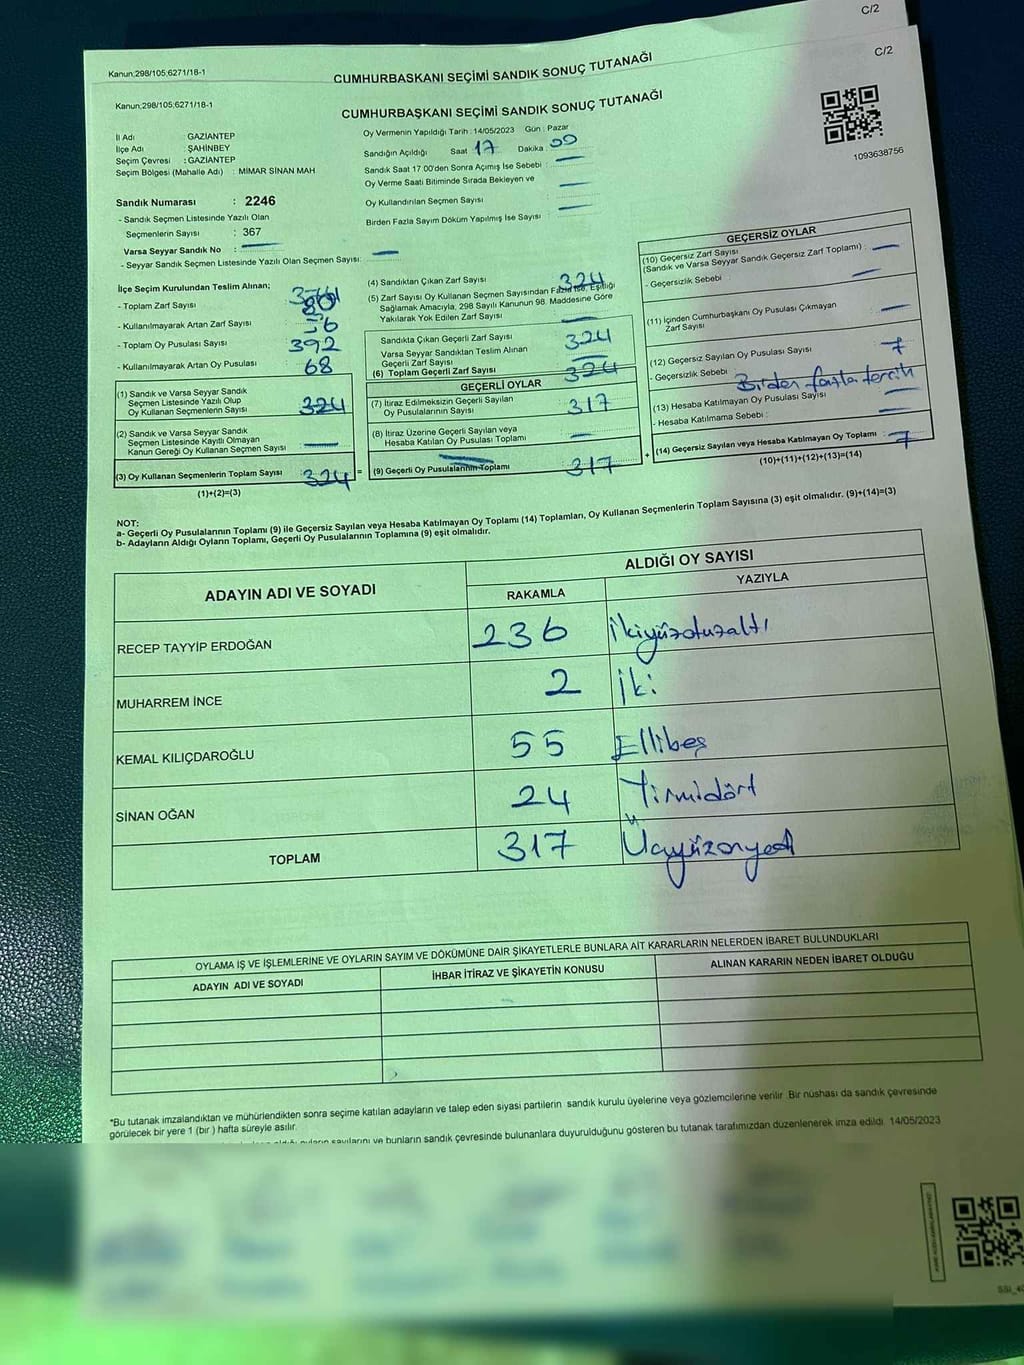 C/2
Kanun;298/105;6271/18-1
CUMHURBAŞKANI SEÇİMİ SANDIK SONUÇ TUTANAĞI
C/2
Kanun;298/105;6271/18-1
CUMHURBAŞKANI SEÇİMİ SANDIK SONUÇ TUTANAĞI
1093638756
İl Adı : GAZİANTEP
İlçe Adı : ŞAHİNBEY
Seçim Çevresi : GAZİANTEP
Seçim Bölgesi (Mahalle Adı) : MİMAR SİNAN MAH
Sandık Numarası : 2246
- Sandık Seçmen Listesinde Yazılı Olan
Seçmenlerin Sayısı : 367
Varsa Seyyar Sandık No :
- Seyyar Sandık Seçmen Listesinde Yazılı Olan Seçmen Sayısı:
Oy Vermenin Yapıldığı Tarih : 14/05/2023 Gün : Pazar
Sandığın Açıldığı Saat 17 Dakika : 00
Sandık Saat 17:00'den Sonra Açılmış İse Sebebi :
Oy Verme Saati Bitiminde Sırada Bekleyen ve
Oy Kullandırılan Seçmen Sayısı :
Birden Fazla Sayım Döküm Yapılmış İse Sayısı :
İlçe Seçim Kurulundan Teslim Alınan;
- Toplam Zarf Sayısı :
- Kullanılmayarak Artan Zarf Sayısı :
- Toplam Oy Pusulası Sayısı : 392
- Kullanılmayarak Artan Oy Pusulası : 68
(1) Sandık ve Varsa Seyyar Sandık
Seçmen Listesinde Yazılı Olup
Oy Kullanan Seçmenlerin Sayısı : 324
(2) Sandık ve Varsa Seyyar Sandık
Seçmen Listesinde Kayıtlı Olmayan
Kanun Gereği Oy Kullanan Seçmen Sayısı :
(3) Oy Kullanan Seçmenlerin Toplam Sayısı : 324 =
(1)+(2)=(3)
(4) Sandıktan Çıkan Zarf Sayısı : 324
(5) Zarf Sayısı Oy Kullanan Seçmen Sayısından Fazla İse, Eşitliği
Sağlamak Amacıyla, 298 Sayılı Kanunun 98. Maddesine Göre
Yakılarak Yok Edilen Zarf Sayısı :
Sandıkta Çıkan Geçerli Zarf Sayısı : 324
Varsa Seyyar Sandıktan Teslim Alınan
Geçerli Zarf Sayısı :
(6) Toplam Geçerli Zarf Sayısı : 324
GEÇERLİ OYLAR
(7) İtiraz Edilmeksizin Geçerli Sayılan
Oy Pusulalarının Sayısı : 317
(8) İtiraz Üzerine Geçerli Sayılan veya
Hesaba Katılan Oy Pusulası Toplamı :
(9) Geçerli Oy Pusulalarının Toplamı : 317 +
GEÇERSİZ OYLAR
(10) Geçersiz Zarf Sayısı
(Sandık ve Varsa Seyyar Sandık Geçersiz Zarf Toplamı) :
- Geçersizlik Sebebi :
(11) İçinden Cumhurbaşkanı Oy Pusulası Çıkmayan
Zarf Sayısı :
(12) Geçersiz Sayılan Oy Pusulası Sayısı : 7
- Geçersizlik Sebebi : Birden fazla tercih
(13) Hesaba Katılmayan Oy Pusulası Sayısı :
- Hesaba Katılmama Sebebi :
(14) Geçersiz Sayılan veya Hesaba Katılmayan Oy Toplamı : 7
(10)+(11)+(12)+(13)=(14)
NOT:
a- Geçerli Oy Pusulalarının Toplamı (9) ile Geçersiz Sayılan veya Hesaba Katılmayan Oy Toplamı (14) Toplamları, Oy Kullanan Seçmenlerin Toplam Sayısına (3) eşit olmalıdır. (9)+(14)=(3)
b- Adayların Aldığı Oyların Toplamı, Geçerli Oy Pusulalarının Toplamına (9) eşit olmalıdır.
ADAYIN ADI VE SOYADI
ALDIĞI OY SAYISI
RAKAMLA YAZIYLA
RECEP TAYYİP ERDOĞAN 236 ikiyüzotuzaltı
MUHARREM İNCE 2 İki
KEMAL KILIÇDAROĞLU 55 Ellibeş
SİNAN OĞAN 24 Yirmidört
TOPLAM 317 Üçyüzonyedi
OYLAMA İŞ VE İŞLEMLERİNE VE OYLARIN SAYIM VE DÖKÜMÜNE DAİR ŞİKAYETLERLE BUNLARA AİT KARARLARIN NELERDEN İBARET BULUNDUKLARI
ADAYIN ADI VE SOYADI İHBAR İTİRAZ VE ŞİKAYETİN KONUSU ALINAN KARARIN NEDEN İBARET OLDUĞU
*Bu tutanak imzalandıktan ve mühürlendikten sonra seçime katılan adayların ve talep eden siyasi partilerin sandık kurulu üyelerine veya gözlemcilerine verilir. Bir nüshası da sandık çevresinde
görülecek bir yere 1 (bir ) hafta süreyle asılır.
sayılarını ve bunların sandık çevresinde bulunanlara duyurulduğunu gösteren bu tutanak tarafımızdan düzenlenerek imza edildi. 14/05/2023